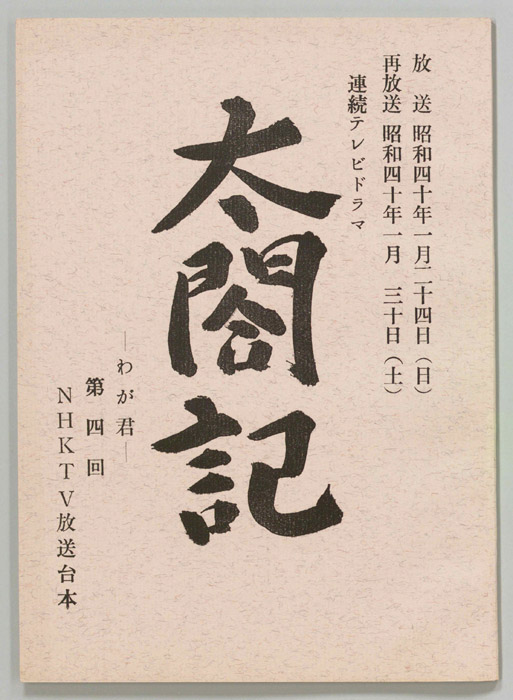 放送 昭和四十年一月二十四日（日）
再放送 昭和四十年一月 三十日（土）
連続テレビドラマ
太閤記
―わが君―
第四回
NHKTV放送台本